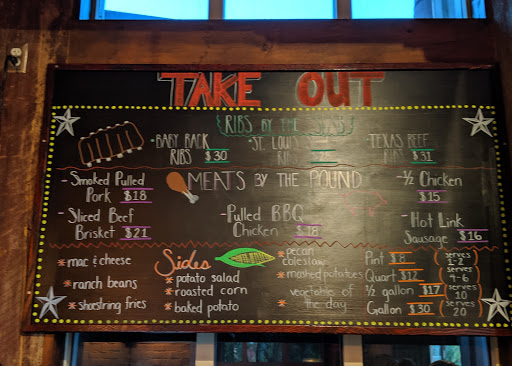 TAKE OUT
RIBS BY THE
• BABY BACK RIBS $30
• ST. LOUIS RIBS
• TEXAS BEEF RIBS $31
MEATS BY THE POUND
- Smoked Pulled Pork $18
- Sliced Beef Brisket $21
- Pulled BBQ Chicken $18
- ½ Chicken $15
- Hot Link Sausage $16
Sides
* mac & cheese
* ranch beans
* shoestring fries
* potato salad
* roasted corn
* baked potato
* pecan coleslaw
* mashed potatoes
* vegetable of the day
Pint $8 (serves 1-2)
Quart $12 (serves 4-6)
½ gallon $17 (serves 10)
Gallon $30 (serves 20)